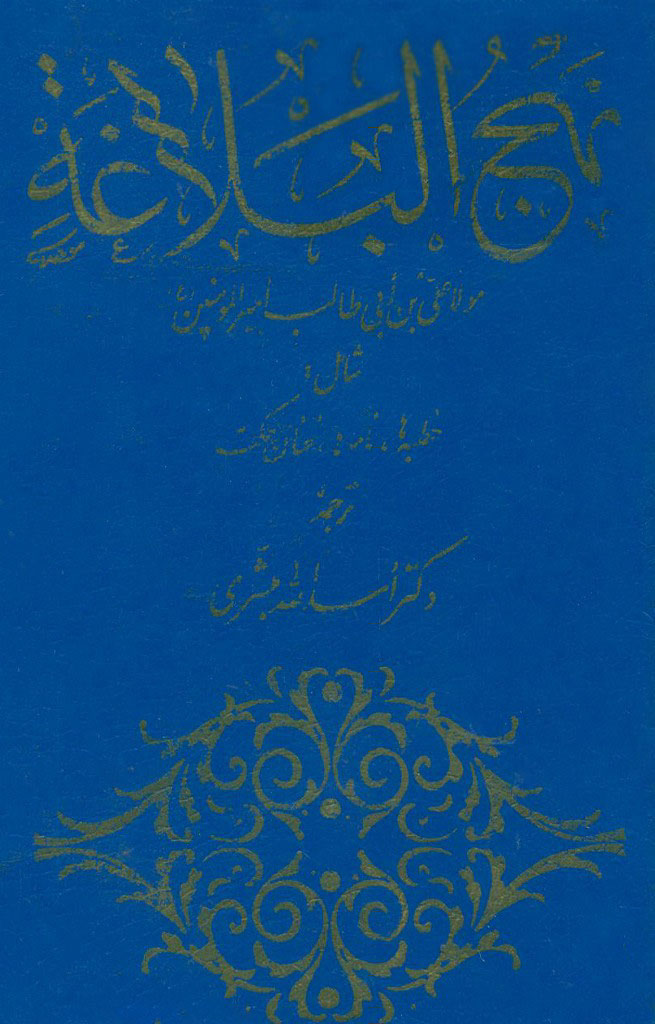 نهج البلاغة
مولا علی بن أبی طالب امیر المؤمنین (ع)
شامل:
خطبه‌ها، نامه‌ها، سخنان حکمت
ترجمهٔ
دکتر اسدالله مبشّری